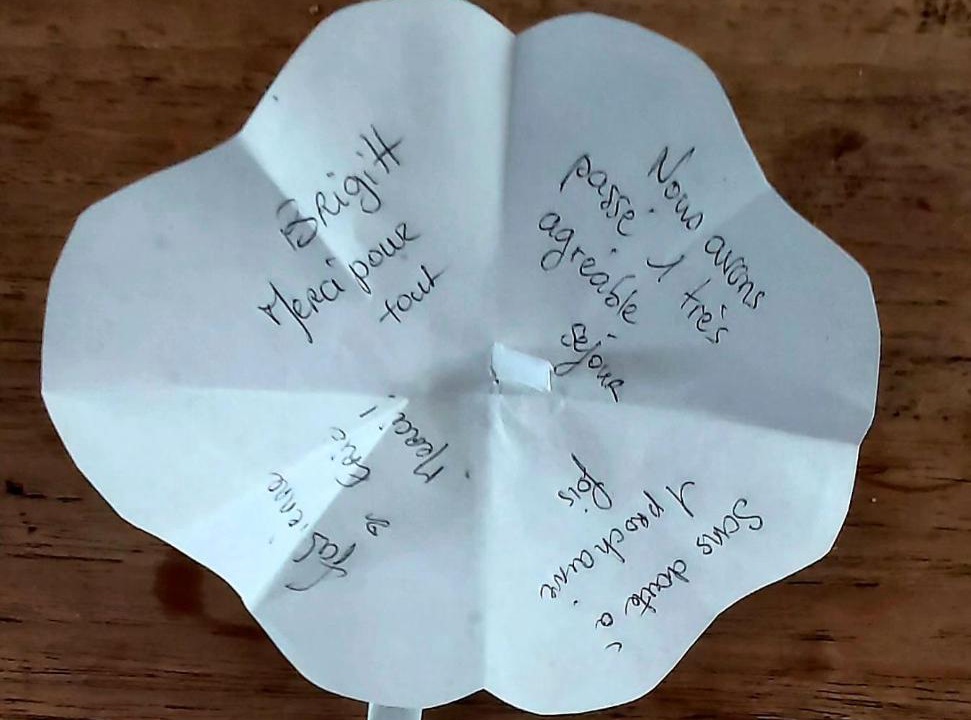 Brigitt
Merci pour
tout
Nous avons
passé 1 très
agréable
séjour
Sans doute à
1 prochaine
fois
Merci !
Eric
& Fabienne